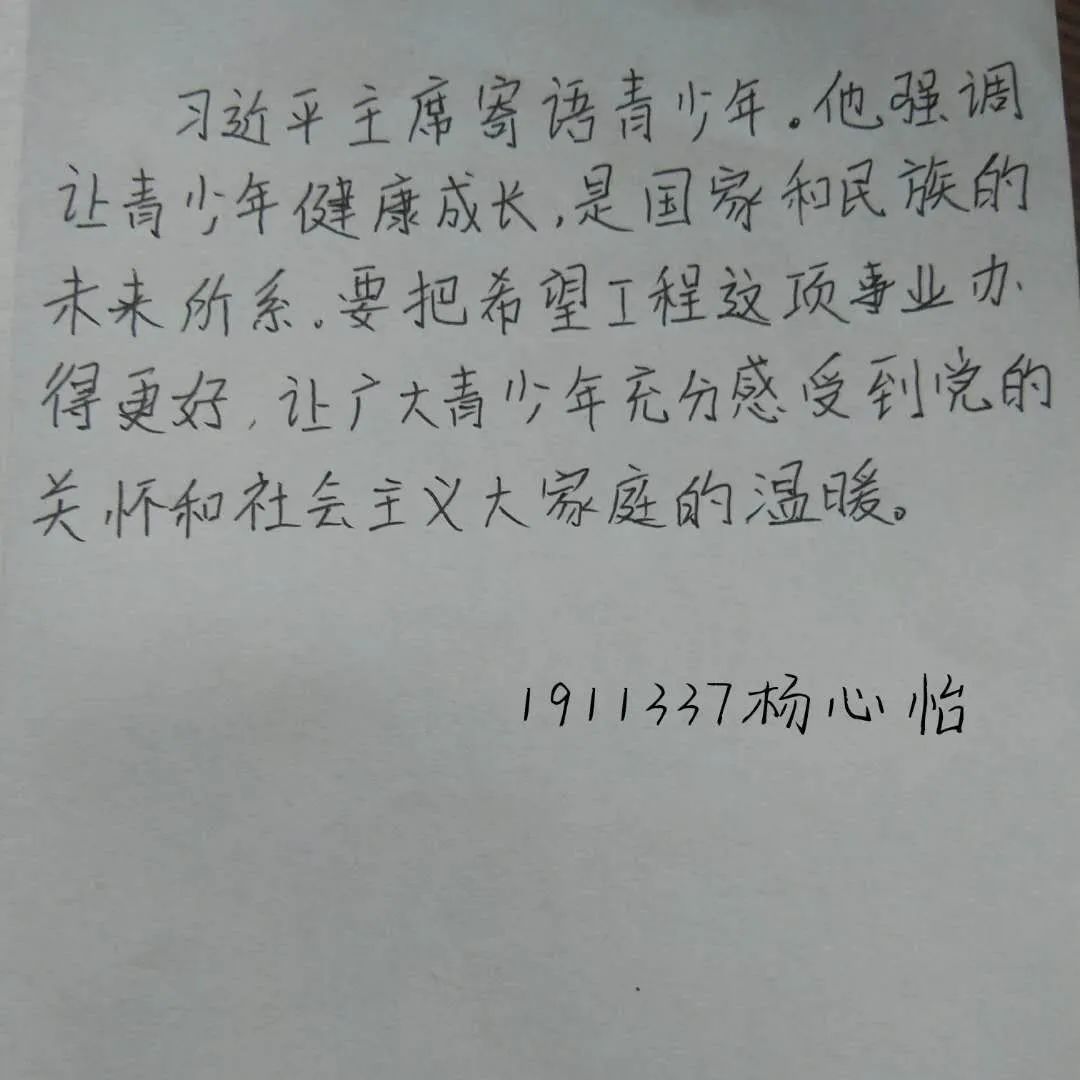 习近平主席寄语青少年。他强调
让青少年健康成长,是国家和民族的
未来所系.要把希望工程这项事业办
得更好,让广大青少年充分感受到党的
关怀和社会主义大家庭的温暖。
1911337杨心怡